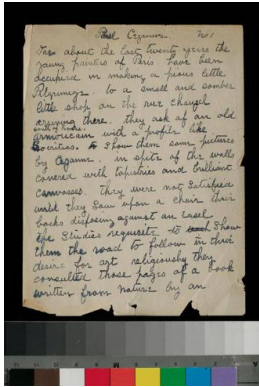 Paul Cezanne. No 1
For about the last twenty years the
young painters of Paris have been
occupied in making a pious little
Pilgrimage. to a small and somber
little shop on the rue chauzel
arriving there, they ask of an old
armoricain with a profile like
Socrities. to Show them some pictures
by Cezanne. in spite of the walls
covered with tapistries and brilliant
canvasses. they were not Satisfied
until they Saw upon a chair their
backs disposing against an easel
the Studies requisite to Show
them the road to follow in their
desire for art religiously they
consulted those pages of a book
written from nature by an